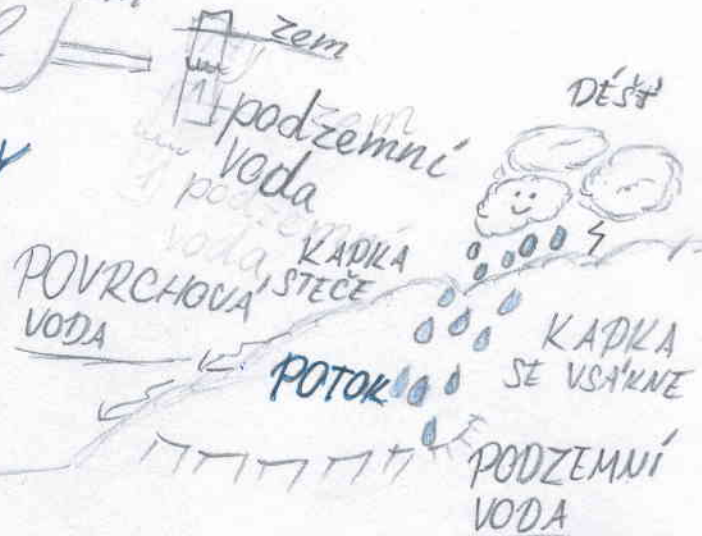 zem
podzemní
voda
DÉŠŤ
KAPKA
STEČE
POVRCHOVÁ
VODA
POTOK
KAPKA
SE VSÁKNE
PODZEMNÍ
VODA